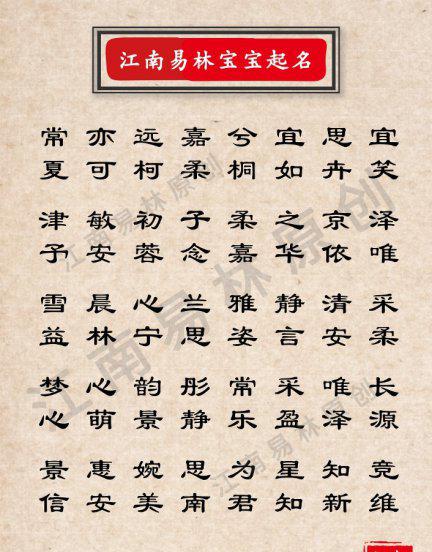 江南易林宝宝起名
常亦远嘉兮宜思宜
夏可柯柔桐如卉笑
津敏初子柔之京泽
予安蓉念嘉华依唯
雪晨心兰雅静清采
益林宁思姿言安柔
梦心韵彤常采唯长
心萌景静乐盈泽源
景惠婉思为星知竞
信安美南君知新维
江南易林原创
江南易林原创
江南易林原创